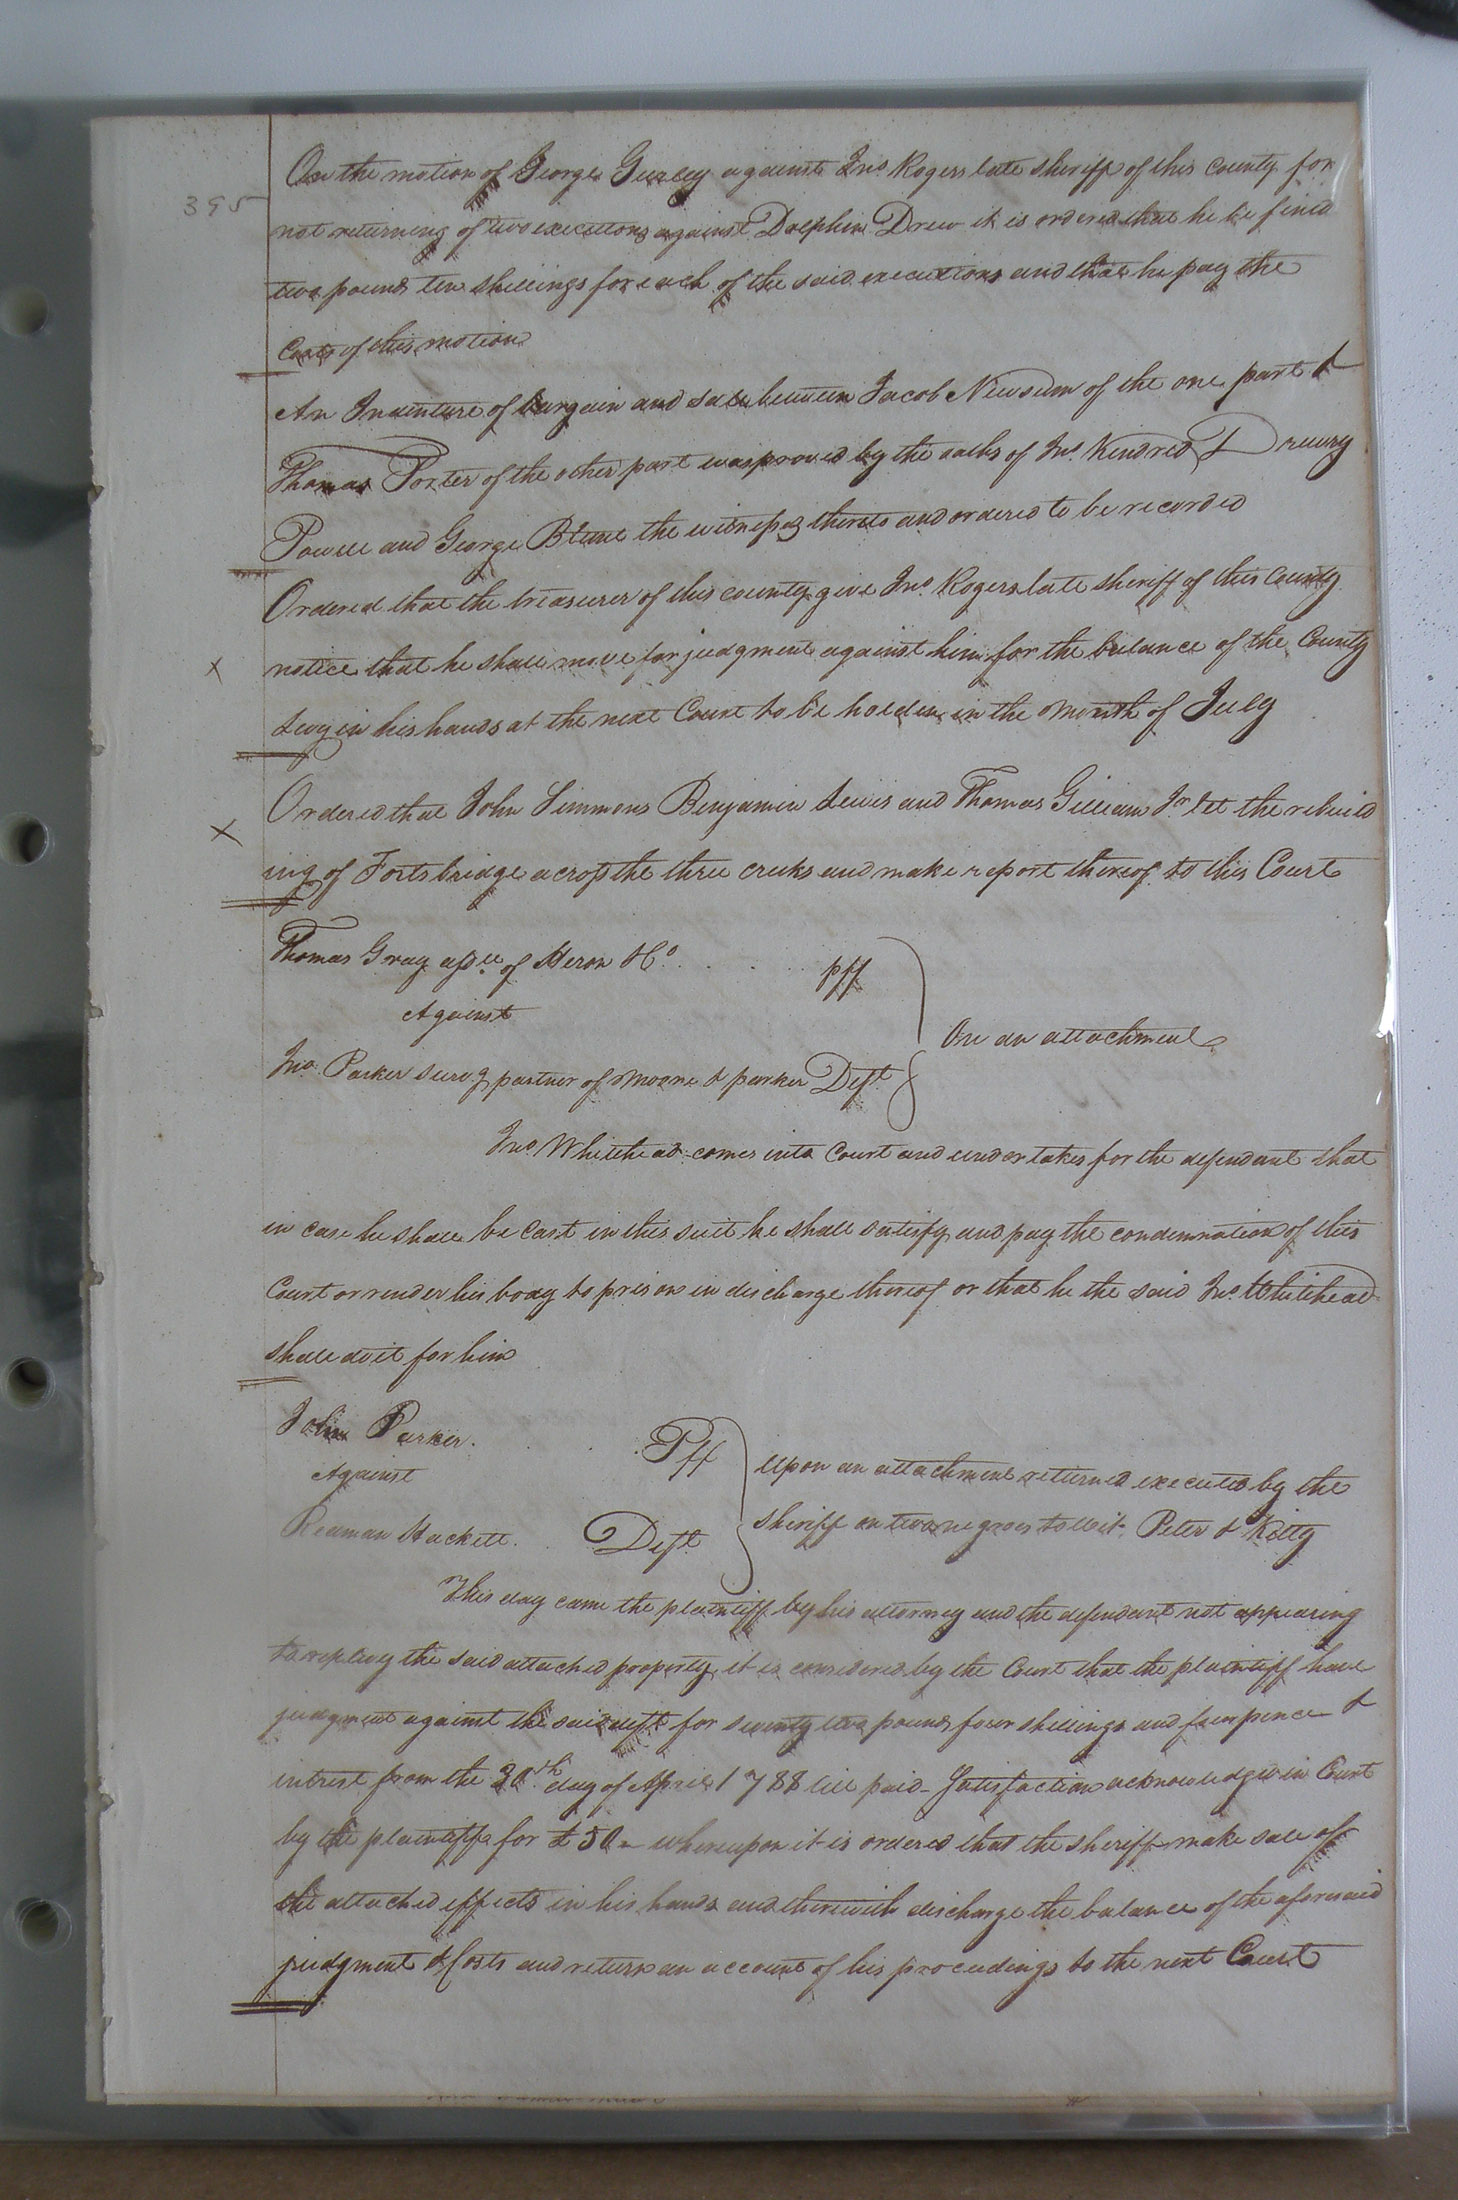 395
On the motion of George Gurley against Jno Rogers late sheriff of this county for
not returning of two executions against Dolphin Drew it is ordered that he be fined
two pound ten shillings for each of the said executions and that he pay the
Costs of this motion
An Indenture of bargain and sale between Jacob Newsum of the one part &
Thomas Porter of the other part was proved by the oaths of Jno. Kindred Drewry
Powell and George Blunt the witnesses thereto and ordered to be recorded
Ordered that the treasurer of this county give Jno. Rogers late sheriff of this County
x notice that he shall move for judgment against him for the balance of the County
Levy in his hands at the next Court to be holden in the month of July
x Ordered that John Simmons Benjamin Lewis and Thomas Gilliam Jr let the rebuild
ing of Forts bridge across the three creeks and make report thereof to this Court
Thomas Gray assee. of Heron & Co. . . . . plf
Against
On an attachment
Jno. Parker survg partner of Moore & parker Deft
Jno Whitehead comes into Court and undertakes for the defendant that
in case he shall be Cast in this suit he shall satisfy and pay the condemnation of this
Court or render his body to prison in discharge thereof or that he the said Jno. Whitehead
shall do it for him
John Parker . . . . Plf
Against
upon an attachment returned executed by the
sheriff on two negroes to wit. Peter & Kitty
Hackett . . Deft
This day came the plaintiff by his attorney and the defendant not appearing
to replevy the said attached property, it is considered by the Court that the plaintiff have
judgment against the said deft for seventy two pounds four shillings and pence &
intrest from the 30th day of April 1788 till paid - Satisfaction acknowledged in Court
by the plaintiff for £ 50 - whereupon it is ordered that the sheriff make sale of
the attached effects in his hands and therewith discharge the balance of the aforesaid
judgment & Costs and return an account of his proceedings to the next Court